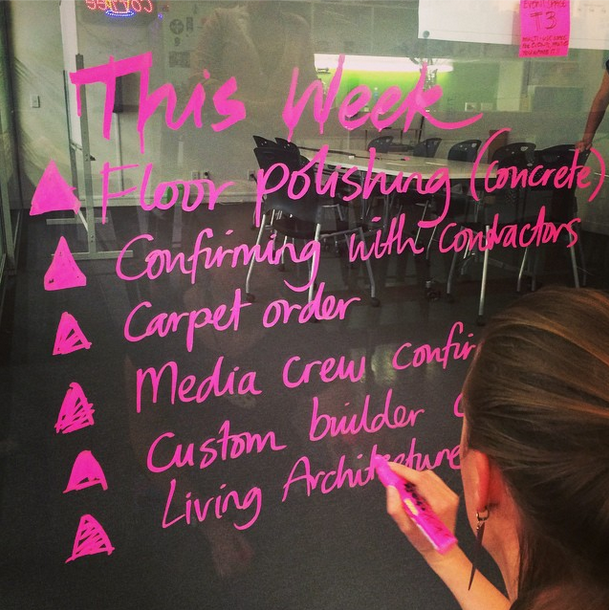 COFFEE
T3
This Week
Floor polishing (concrete)
Confirming with contractors
Carpet order
Media crew confir
Custom builder
Living Architecture